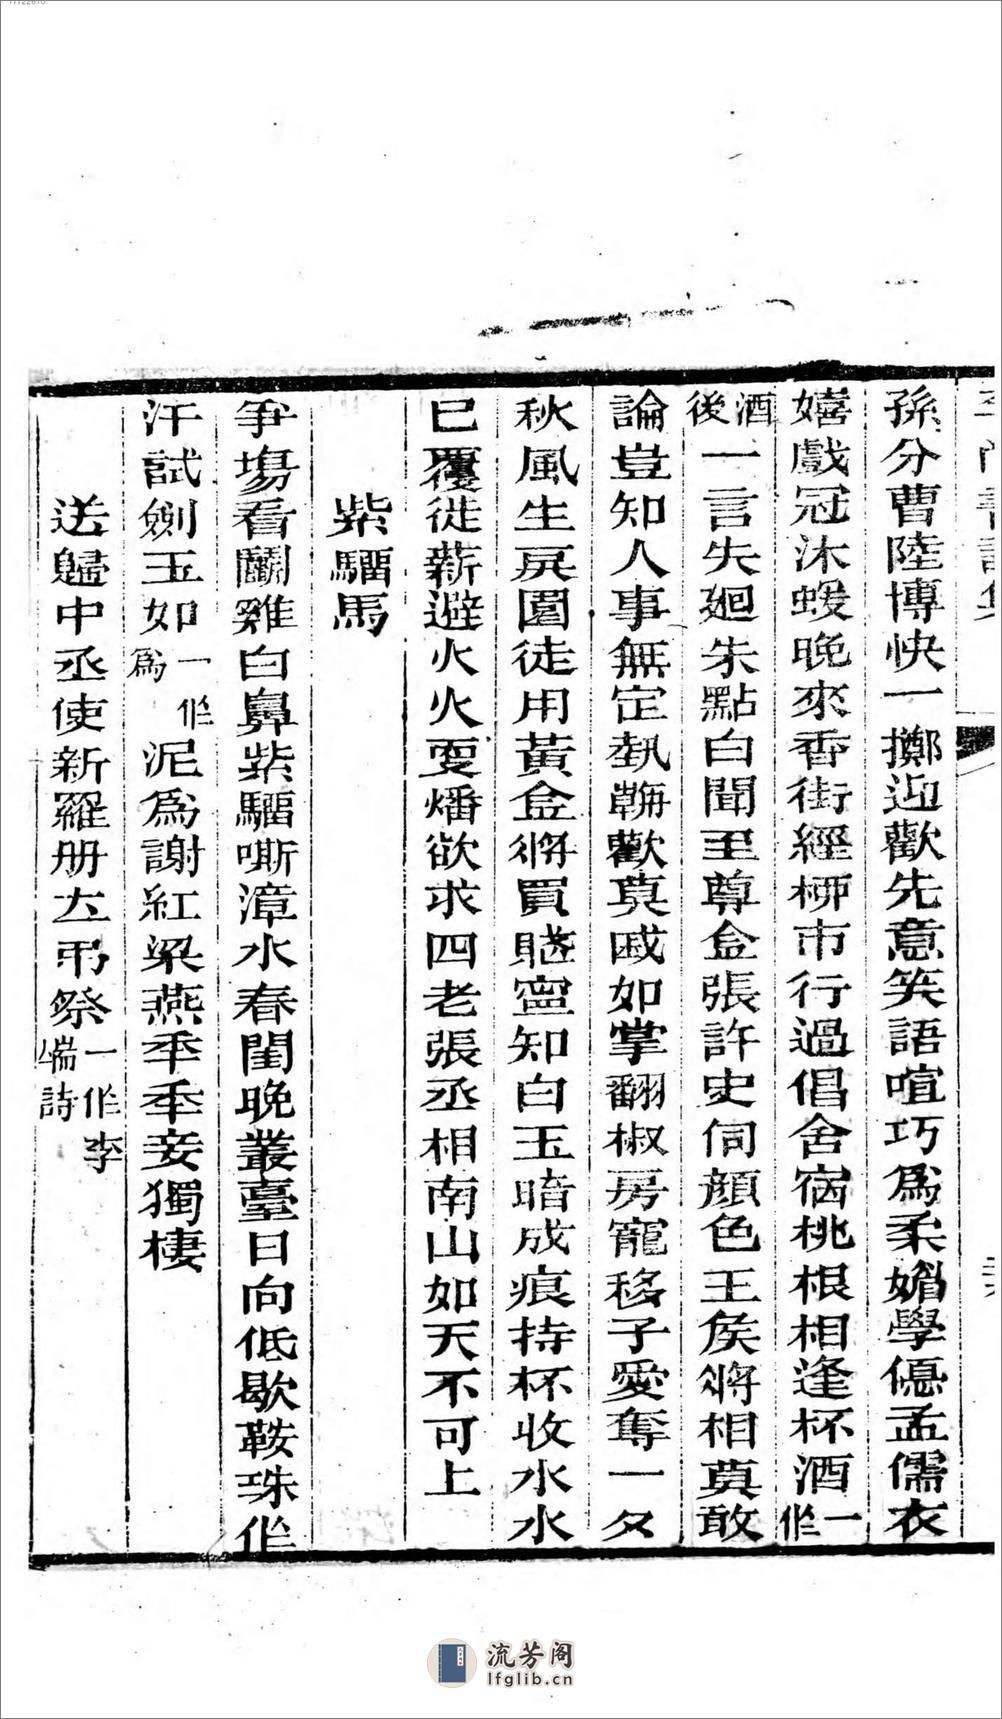 孫分曹陸博快一擲迎歡先意笑語喧巧爲柔媚學優孟儒衣
嬉戲冠沐蝯晚來香街經柳市行過倡舍宿桃根相逢杯酒一作
酒後一言失廻朱點白聞至尊金張許史伺顔色王侯將相莫敢
論豈知人事無定執翻歡莫戚如掌翻椒房寵移子愛奪一夕
秋風生戾園徒用黃金將買賦寧知白玉暗成痕持杯收水水
已覆徙薪避火火更燔欲求四老張丞相南山如天不可上
紫騮馬
爭場看鬭雞白鼻紫騮嘶漳水春閨晚叢臺日向低歇鞍珠作
汗試劍玉如一作爲泥爲謝紅梁燕年年妾獨棲
送歸中丞使新羅册立弔祭一作李端詩
流芳阁
lfglib.cn